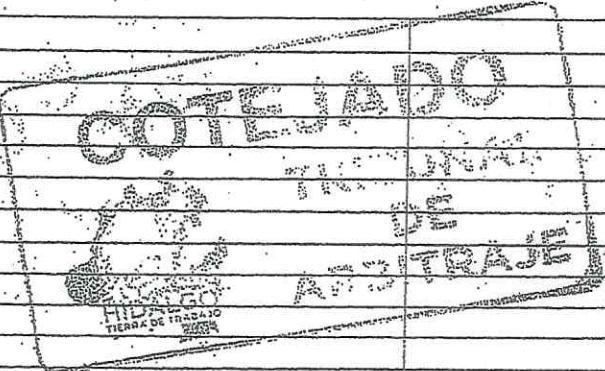 COTEJADO
TRIBUNAL
DE
ARBITRAJE
HIDALGO
TIERRA DE TRABAJO